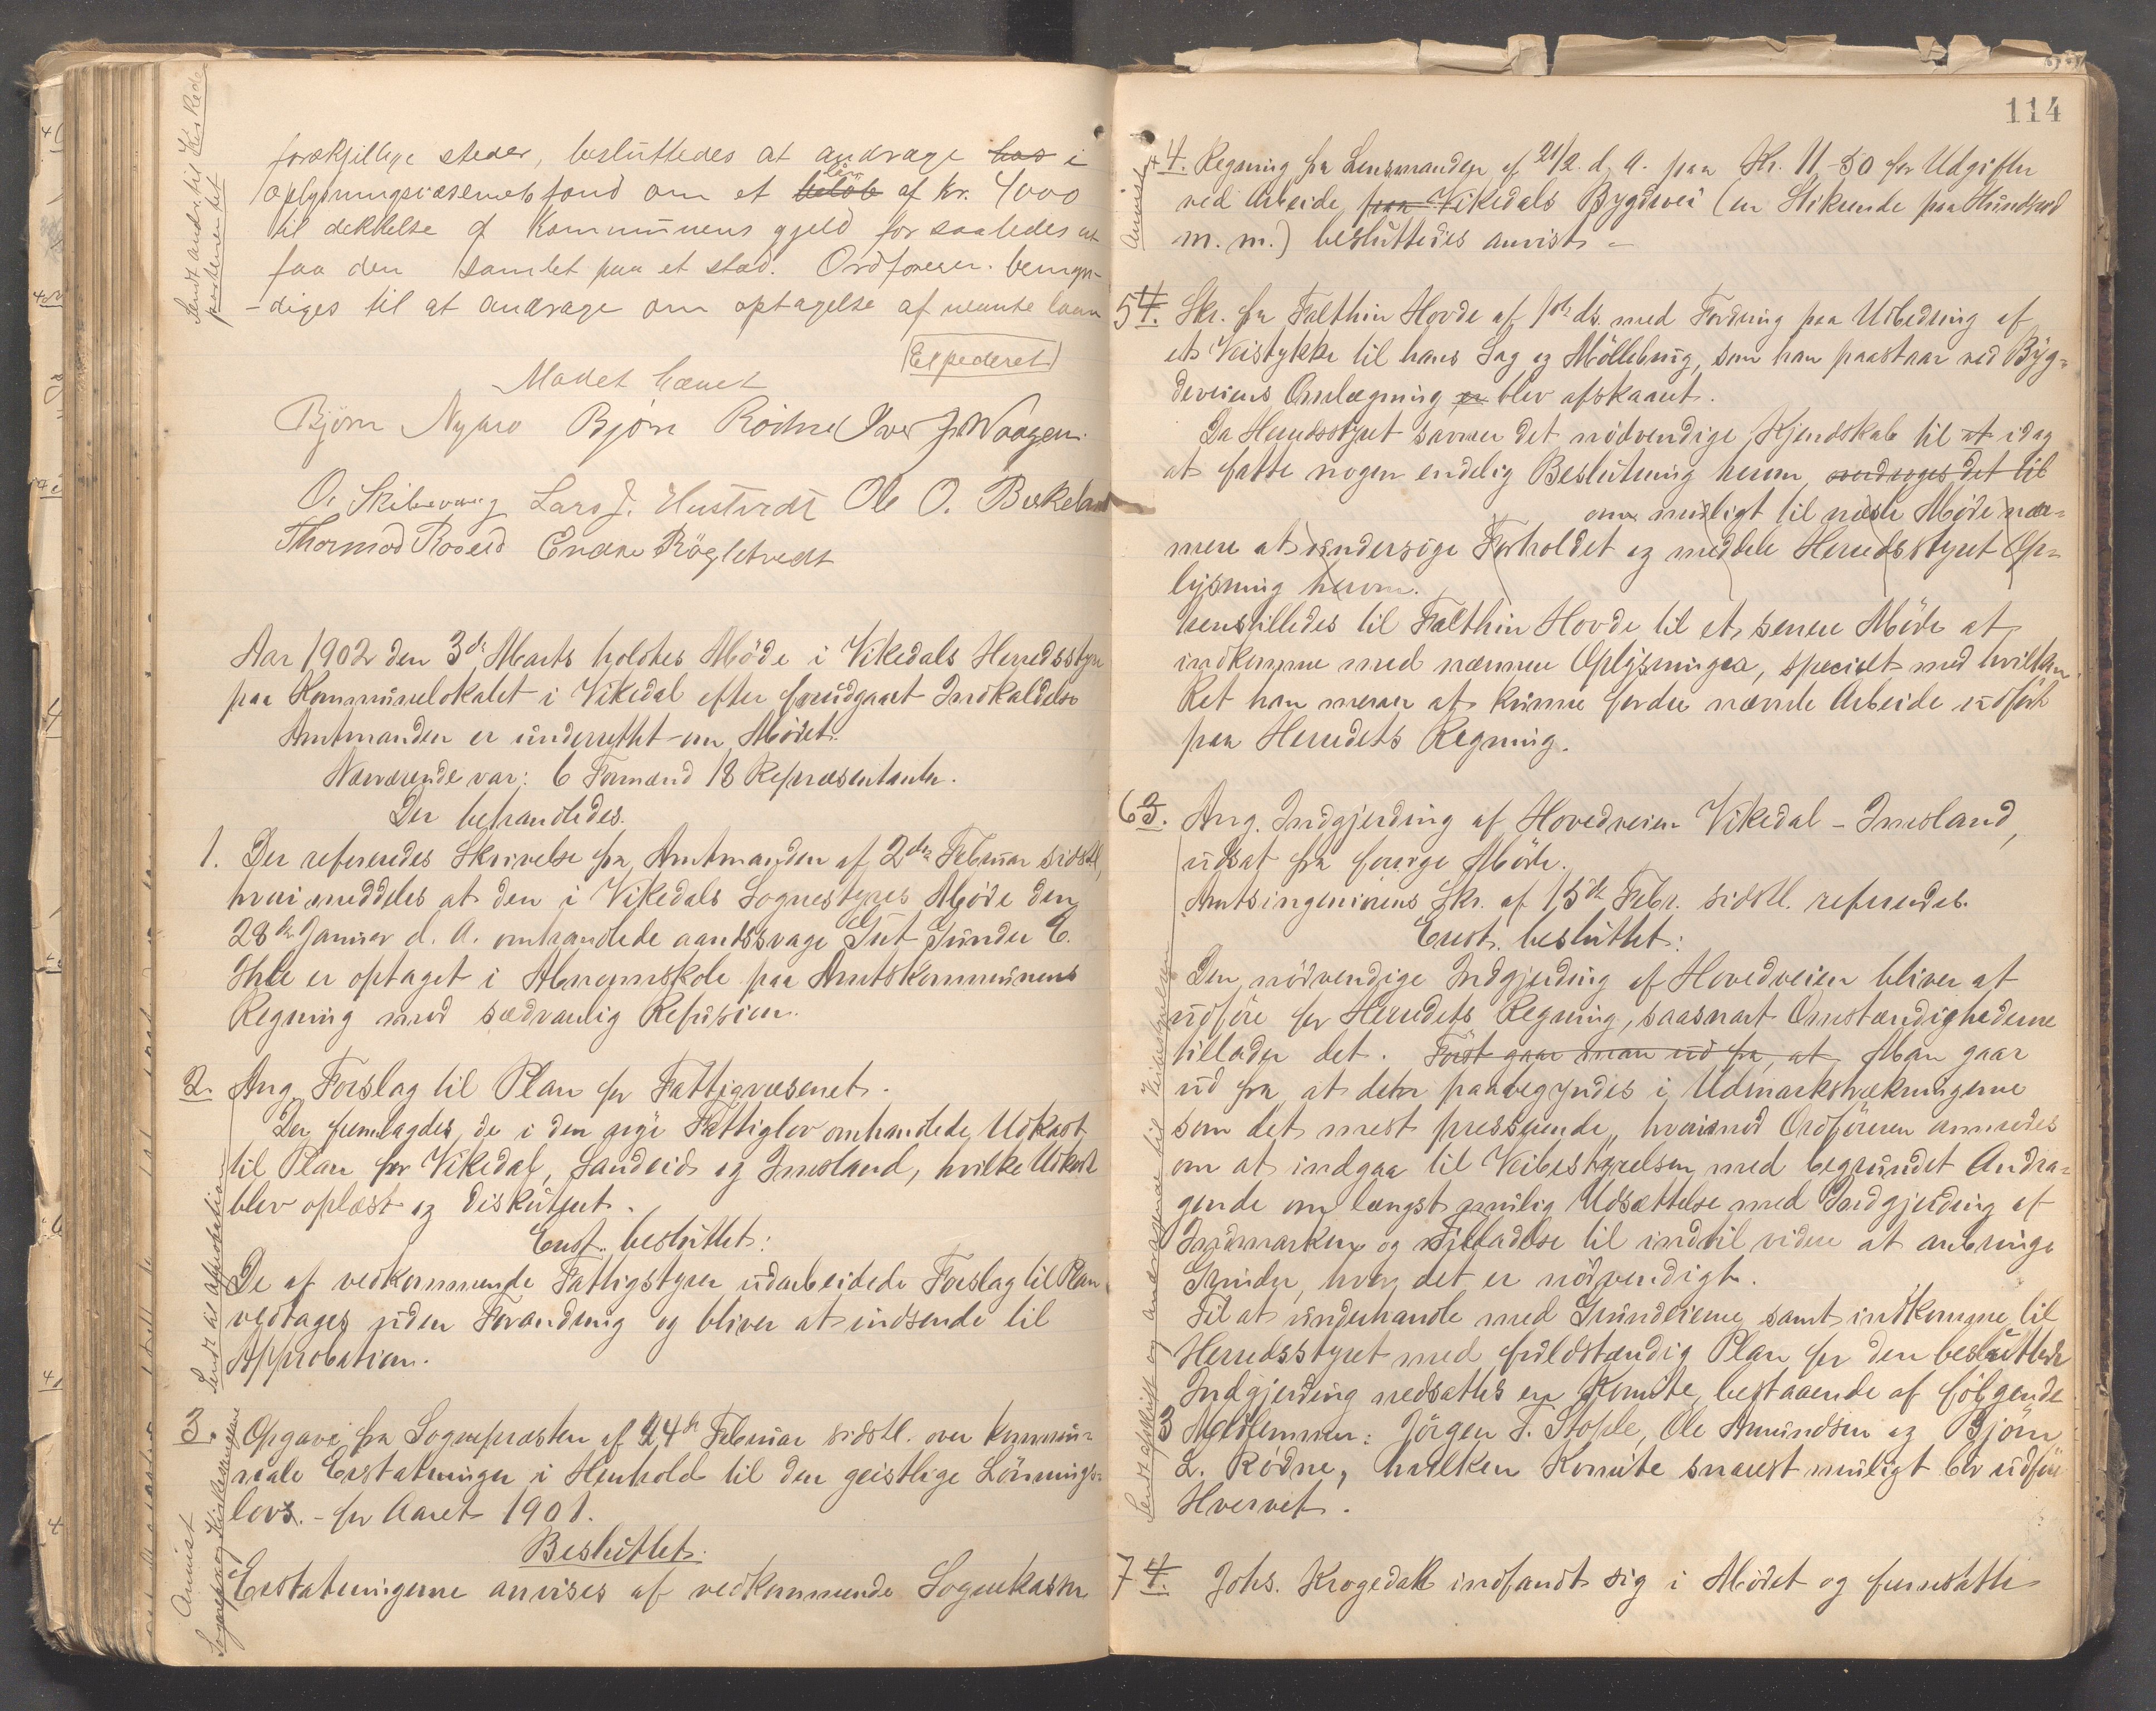 Sendt andr. til Kirkedep.
forskjellige steder, besluttedes at andrage hos i
oplysningsvæsenets fond om et beløb lån af kr. 4000
til dekkelse af Kommunens gjeld for saaledes at
faa den samlet paa et sted. Ordføreren bemyn-
-diges til at andrage om optagelse af nevnte laan
Expederet
Mødet hævet
Bjørn Nygaro Bjørn Rödne Iver J. Waagen
O. Skibevaag Lars J. Hustvedt Ole O. Birkeland
Thormod Roaeld Endre Röglstvedt
Aar 1902 den 3die Marts holdtes Møde i Vikedals Herredsstyre
paa Kommunelokalet i Vikedal efter forudgaaet Indkaldelse
Amtmanden er underrettet om Mødet.
Nærværende var: 6 Formænd 18 Repræsentanter.
Der behandledes.
1. Der refereredes Skrivelse fra Amtmanden af 2den Februar sidstl,
hvori meddeles at den i Vikedals Sognestyres Møde den
28de Januar d. A. omhandlede aandssvage Gut Gunder E.
Ihle er optaget i Abnormskole paa Amtskommunens
Regning med sædvanlig Refusion.
2. Ang. Forslag til Plan for Fattigvæsenet.
Der fremlagdes de i den nye Fattiglov omhandlede Udkast
til Plan for Vikedal, Sandeid og Imsland, hvilke Udkast
blev oplæst og diskuteret.
Enst. besluttet:
De af vedkommende Fattigstyrer udarbeidede Forslag til Plan
vedtages uden Forandring og bliver at indsende til
Approbation.
Sendt til Approbation
3. Opgave fra Sognepræsten af 24de Februar sidstl. over kommu-
nale Erstatninger i Henhold til den geistlige Lönnings-
lovs. - for Aaret 1901.
Besluttet:
Erstatningerne anvises af vedkommende Sognekasser
Anvist
Sognepr. og Kirkesangere
114
Anvist
4. Regning fra Lensmanden af 21/2 d. A. paa Kr. 11-50 for Udgifter
ved Arbeide paa Vikedals Bygdevei (en Stikrende paa Hundseid
m. m.) besluttedes anvist –
5 4. Skr. fra Falthin Hovde af 1ste ds. med Fordring paa Udbedring af
et Veistykke til hans Sag og Möllebrug, som han paastaar ved Byg-
deveiens Omlægning er blev afskaaret.
Da Herredsstyret savner det nödvendige Kjendskab til at idag
at fatte nogen endelig Beslutning herom, overdroges det til
om muligt til næste Møde nær-
mere at undersöge Forholdet og meddele Herredsstyret Op-
lysning herom.
henstilledes til Falthin Hovde til et senere Møde at
indkomme med nærmere Oplysninger, specielt med hvilken
Ret han mener at kunne fordre nævnte Arbeide udført
paa Herredets Regning.
6 3. Ang. Indgjerding af Hovedveien Vikedal – Imsland,
udsat fra forrige Møde.
Amtsingeniörens Skr. af 15de Febr. sidstl. refereredes.
Enst. besluttet:
Den nödvendige Indgjerding af Hovedveien bliver at
udföre for Herredets Regning, saasnart Omstændighederne
tillader det. Först gaar man ud fra, at Man gaar
ud fra at den paabegyndes i Udmarkstrækningerne
som det mest presserende, hvorimod Ordföreren anmodes
om at indgaa til Veibestyrelsen med begrundet Andra-
gende om længst mulig Udsættelse med Indgjerding af
Indmarken og Tilladelse til indtil videre at anbringe
Grinder, hvor det er nödvendigt.
Til at underhandle med Grundeierne samt indkomme til
Herredsstyret med fuldstændig Plan for den besluttede
Indgjerding nedsattes en Komite bestaaende af fölgende
3 Medlemmer: Jörgen T. Stople, Ole Amundsen og Björn
L. Rödne, hvilken Komite snarest muligt bör udföre
Hvervet.
Sendt afskrift og andragende til Veibestyrelsen
7 4. Johs. Krogedal indfandt sig i Mødet og fremsatte